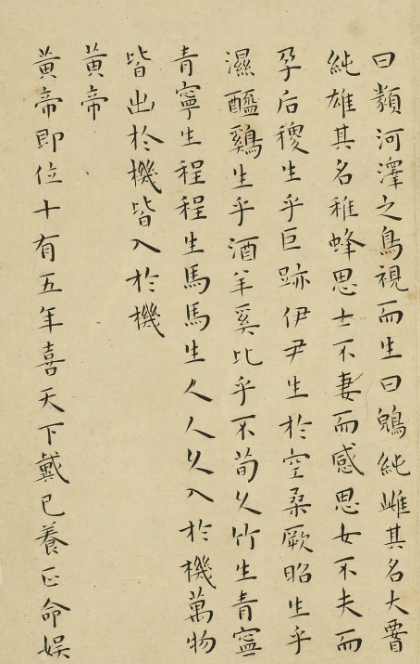 曰類河澤之鳥視而生曰鶂純雌其名大䁂
純雄其名稚蜂思士不妻而感思女不夫而
孕后稷生乎巨跡伊尹生於空桑厥昭生乎
濕醯雞生乎酒羊奚比乎不荀久竹生青寧
青寧生程程生馬馬生人人久入於機萬物
皆出於機皆入於機
黃帝
黃帝即位十有五年喜天下戴已養正命娱